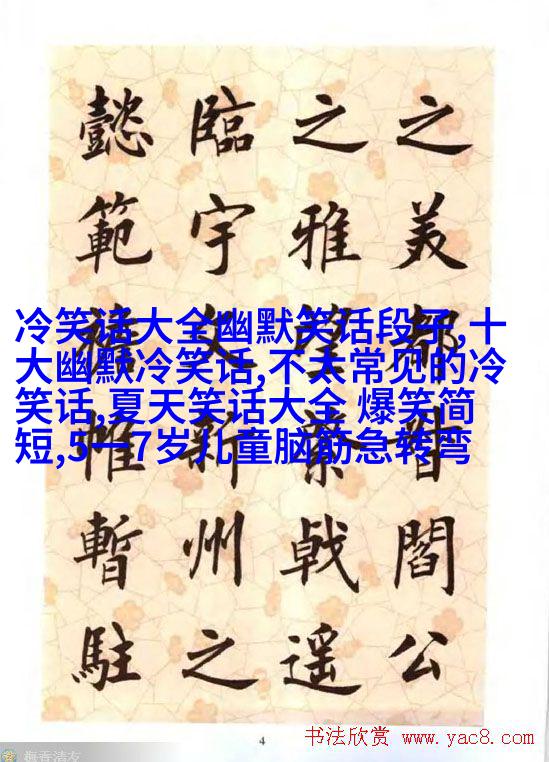 之美都督閻公
之雅望棨戟遥
臨宇文新州之
懿範襜帷暫駐
冷笑话大全幽默笑话段子,十
大幽默冷笑话,不太常见的冷
笑话,夏天笑话大全 爆笑简
短,5一7岁儿童脑筋急转弯
4
书法欣赏 www.yac8.com